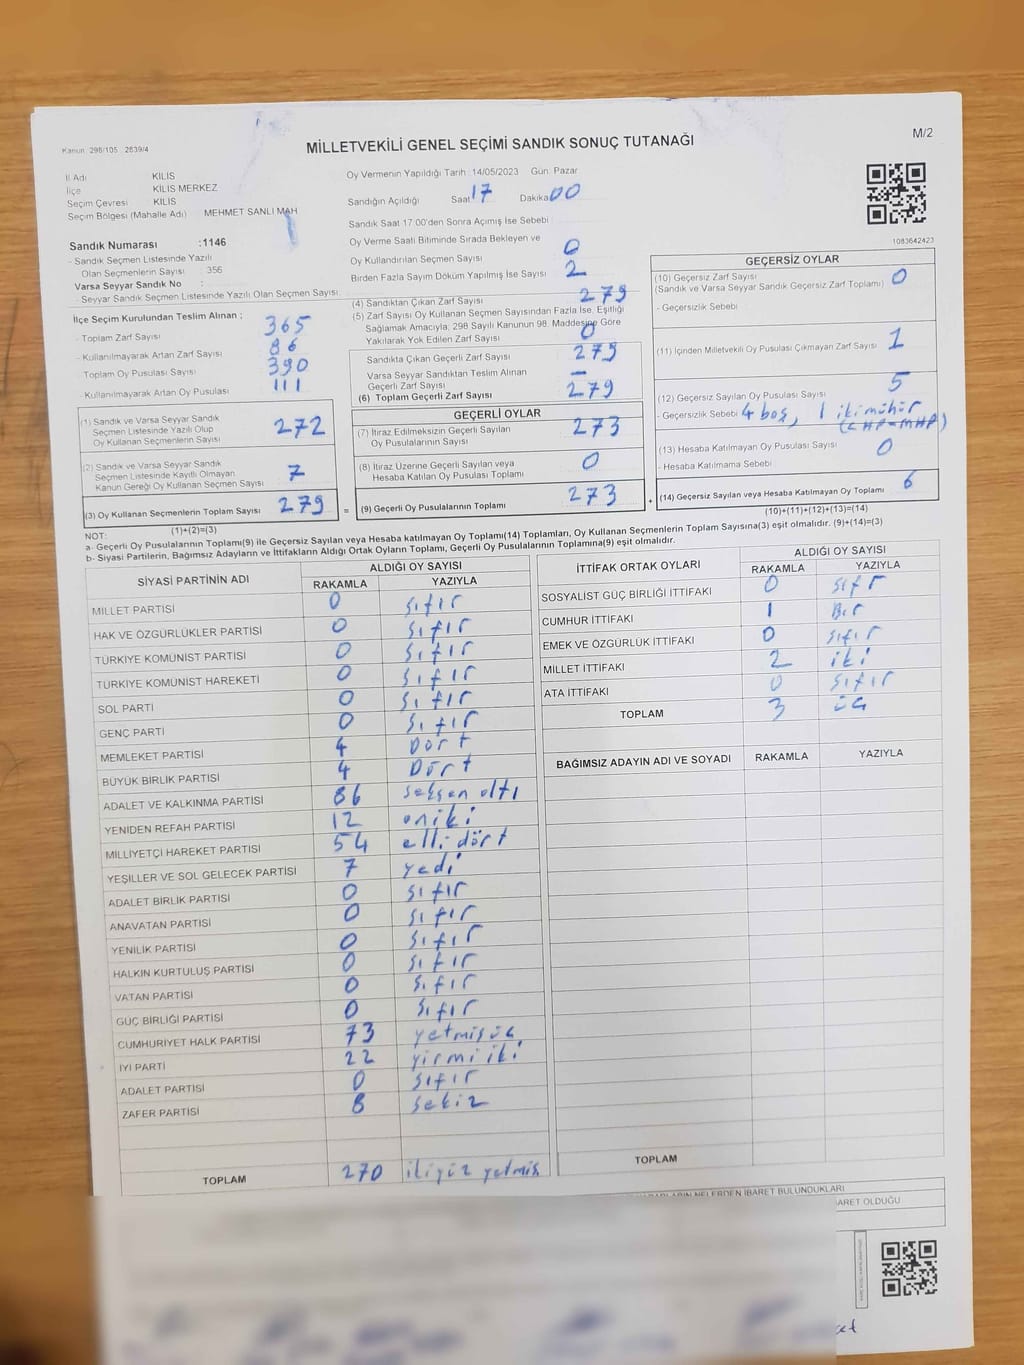 Kanun: 298/105 2839/4
MİLLETVEKİLİ GENEL SEÇİMİ SANDIK SONUÇ TUTANAĞI
M/2
İl Adı KİLİS
İlçe KİLİS MERKEZ
Seçim Çevresi KİLİS
Seçim Bölgesi (Mahalle Adı) MEHMET SANLI MAH
Sandık Numarası :1146
- Sandık Seçmen Listesinde Yazılı
Olan Seçmenlerin Sayısı : 356
Varsa Seyyar Sandık No :
- Seyyar Sandık Seçmen Listesinde Yazılı Olan Seçmen Sayısı
Oy Vermenin Yapıldığı Tarih : 14/05/2023 Gün: Pazar
Sandığın Açıldığı Saat 17 Dakika 00
Sandık Saat 17:00'den Sonra Açılmış İse Sebebi :
Oy Verme Saati Bitiminde Sırada Bekleyen ve
Oy Kullandırılan Seçmen Sayısı 0
Birden Fazla Sayım Döküm Yapılmış İse Sayısı 2
1083642423
İlçe Seçim Kurulundan Teslim Alınan ;
- Toplam Zarf Sayısı 365
- Kullanılmayarak Artan Zarf Sayısı 86
- Toplam Oy Pusulası Sayısı 390
- Kullanılmayarak Artan Oy Pusulası 111
(1) Sandık ve Varsa Seyyar Sandık
Seçmen Listesinde Yazılı Olup
Oy Kullanan Seçmenlerin Sayısı 272
(2) Sandık ve Varsa Seyyar Sandık
Seçmen Listesinde Kayıtlı Olmayan
Kanun Gereği Oy Kullanan Seçmen Sayısı 7
(3) Oy Kullanan Seçmenlerin Toplam Sayısı 279
(1)+(2)=(3)
(4) Sandıktan Çıkan Zarf Sayısı 279
(5) Zarf Sayısı Oy Kullanan Seçmen Sayısından Fazla İse, Eşitliği
Sağlamak Amacıyla; 298 Sayılı Kanunun 98. Maddesine Göre
Yakılarak Yok Edilen Zarf Sayısı 0
Sandıkta Çıkan Geçerli Zarf Sayısı 279
Varsa Seyyar Sandıktan Teslim Alınan
Geçerli Zarf Sayısı –
(6) Toplam Geçerli Zarf Sayısı 279
GEÇERLİ OYLAR
(7) İtiraz Edilmeksizin Geçerli Sayılan
Oy Pusulalarının Sayısı 273
(8) İtiraz Üzerine Geçerli Sayılan veya
Hesaba Katılan Oy Pusulası Toplamı 0
= (9) Geçerli Oy Pusulalarının Toplamı 273
GEÇERSİZ OYLAR
(10) Geçersiz Zarf Sayısı
(Sandık ve Varsa Seyyar Sandık Geçersiz Zarf Toplamı) 0
- Geçersizlik Sebebi
(11) İçinden Milletvekili Oy Pusulası Çıkmayan Zarf Sayısı 1
(12) Geçersiz Sayılan Oy Pusulası Sayısı 5
- Geçersizlik Sebebi 4 boş, 1 iki mühür
(CHP-MHP)
(13) Hesaba Katılmayan Oy Pusulası Sayısı 0
- Hesaba Katılmama Sebebi
+ (14) Geçersiz Sayılan veya Hesaba Katılmayan Oy Toplamı 6
(10)+(11)+(12)+(13)=(14)
NOT:
a- Geçerli Oy Pusulalarının Toplamı(9) ile Geçersiz Sayılan veya Hesaba katılmayan Oy Toplamı(14) Toplamları, Oy Kullanan Seçmenlerin Toplam Sayısına(3) eşit olmalıdır. (9)+(14)=(3)
b- Siyasi Partilerin, Bağımsız Adayların ve İttifakların Aldığı Ortak Oyların Toplamı, Geçerli Oy Pusulalarının Toplamına(9) eşit olmalıdır.
SİYASİ PARTİNİN ADI ALDIĞI OY SAYISI
RAKAMLA YAZIYLA
MİLLET PARTİSİ 0 sıfır
HAK VE ÖZGÜRLÜKLER PARTİSİ 0 sıfır
TÜRKİYE KOMÜNİST PARTİSİ 0 sıfır
TÜRKİYE KOMÜNİST HAREKETİ 0 sıfır
SOL PARTİ 0 sıfır
GENÇ PARTİ 0 sıfır
MEMLEKET PARTİSİ 4 Dört
BÜYÜK BİRLİK PARTİSİ 4 Dört
ADALET VE KALKINMA PARTİSİ 86 seksen altı
YENİDEN REFAH PARTİSİ 12 oniki
MİLLİYETÇİ HAREKET PARTİSİ 54 elli dört
YEŞİLLER VE SOL GELECEK PARTİSİ 7 yedi
ADALET BİRLİK PARTİSİ 0 sıfır
ANAVATAN PARTİSİ 0 sıfır
YENİLİK PARTİSİ 0 sıfır
HALKIN KURTULUŞ PARTİSİ 0 sıfır
VATAN PARTİSİ 0 sıfır
GÜÇ BİRLİĞİ PARTİSİ 0 sıfır
CUMHURİYET HALK PARTİSİ 73 yetmişüç
İYİ PARTİ 22 yirmi iki
ADALET PARTİSİ 0 sıfır
ZAFER PARTİSİ 8 sekiz
TOPLAM 270 ikiyüz yetmiş
İTTİFAK ORTAK OYLARI ALDIĞI OY SAYISI
RAKAMLA YAZIYLA
SOSYALİST GÜÇ BİRLİĞİ İTTİFAKI 0 sıfır
CUMHUR İTTİFAKI 1 Bir
EMEK VE ÖZGÜRLÜK İTTİFAKI 0 sıfır
MİLLET İTTİFAKI 2 iki
ATA İTTİFAKI 0 sıfır
TOPLAM 3 üç
BAĞIMSIZ ADAYIN ADI VE SOYADI RAKAMLA YAZIYLA
TOPLAM
NELERDEN İBARET BULUNDUKLARI
İBARET OLDUĞU